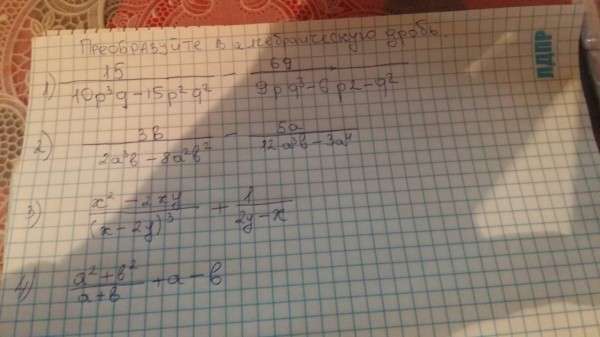 Преобразуйте в алгебраическую дробь.
1) 15/(10p³q-15p²q²) - 6q/(9pq³-6p2-q²)
2) 3b/(2a³b-8a²b²) - 5a/(12a³b-3a⁴)
3) (x²-2xy)/(x-2y)³ + 1/(2y-x)
4) (a²+b²)/(a+b) +a-b
ЛДПР